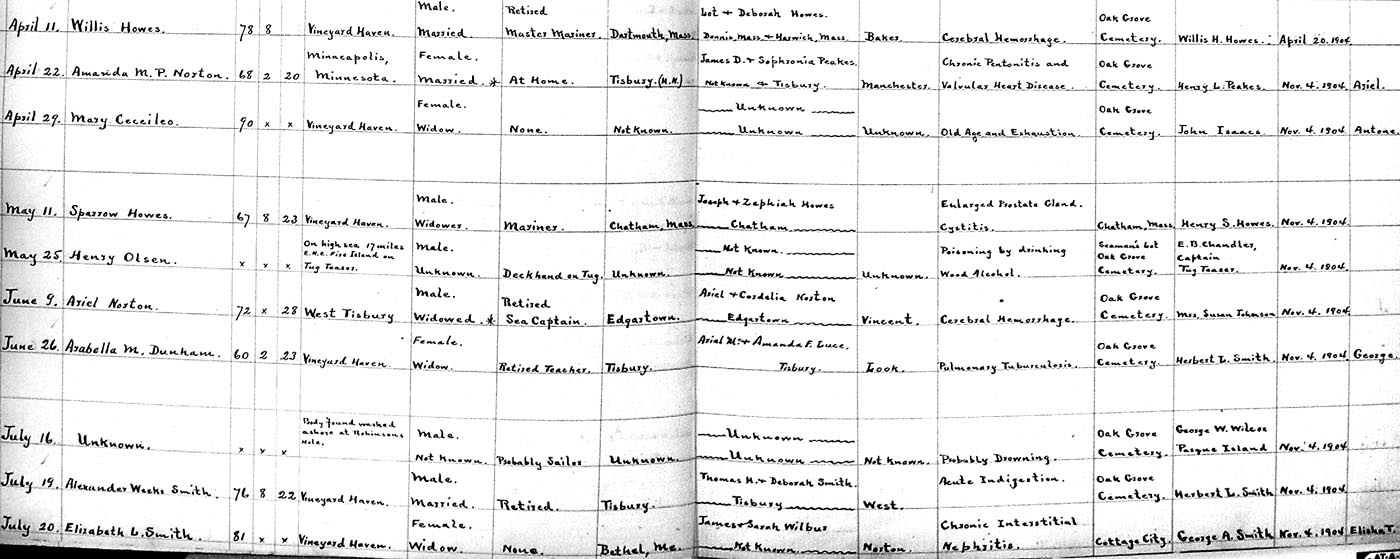 Male. Retired Lot + Deborah Howes. Oak Grove
April 11. Willis Howes. 78 8 Vineyard Haven. Married Master Mariner. Dartmouth, Mass. Dennis, Mass. + Harwich, Mass. Baker Cerebral Hemorrhage. Cemetery. Willis H. Howes. April 20. 1904
Minneapolis, Female. James D. + Sophronia Peakes. Chronic Peritonitis and Oak Grove
April 22. Amanda M. P. Norton. 68 2 20 Minnesota. Married. * At Home. Tisbury. (N.H.) Not Known + Tisbury. Manchester. Valvular Heart Disease. Cemetery. Henry L. Peakes. Nov. 4. 1904. Ariel.
Female. Unknown Oak Grove
April 29. Mary Ceceileo. 90 x x Vineyard Haven. Widow. None. Not Known. Unknown Unknown. Old Age and Exhaustion. Cemetery. John Isaacs. Nov. 4. 1904. Antone
Male. Joseph + Zephiah Howes Enlarged Prostate Gland.
May 11. Sparrow Howes. 67 8 23 Vineyard Haven. Widower. Mariner. Chatham, Mass. Chatham. Cystitis. Chatham, Mass. Henry S. Howes. Nov. 4. 1904.
On high sea 17 miles Male. Not Known. Poisoning by drinking Seaman's Lot E. B. Chandler,
E.N.E. Fire Island on Oak Grove Captain
May 25. Henry Olsen. x x x Tug Teaser. Unknown. Deckhand on Tug. Unknown. Not Known. Unknown. Wood Alcohol. Cemetery. Tug Teaser. Nov. 4. 1904
Male. Retired Ariel + Cordelia Norton Oak Grove
June 9. Ariel Norton. 72 x 28 West Tisbury Widowed. * Sea Captain. Edgartown. Edgartown. Vincent. Cerebral Hemorrhage. Cemetery. Mrs. Susan Johnson Nov. 4. 1904.
Female. Arial M. + Amanda F. Luce. Oak Grove
June 26. Arabella M. Dunham. 60 2 23 Vineyard Haven. Widow. Retired Teacher. Tisbury. Tisbury. Look. Pulmonary Tuburculosis. Cemetery. Herbert L. Smith. Nov. 4. 1904 George.
Body found washed Male. Unknown Oak Grove George W. Wilcox
ashore at Robinsons
July 16. Unknown. x x x Hole. Not Known. Probably Sailor Unknown. Unknown Not Known. Probably Drowning. Cemetery. Pasque Island Nov. 4. 1904
Male. Thomas H. + Deborah Smith. Acute Indigestion. Oak Grove
July 19. Alexander Weeks Smith. 76 8 22 Vineyard Haven. Married. Retired. Tisbury. Tisbury. West. Cemetery. Herbert L. Smith Nov. 4. 1904
Female. James + Sarah Wilbur Chronic Interstitial
July 20. Elizabeth L. Smith. 81 x x Vineyard Haven. Widow. None Bethel, Me. Not Known. Norton. Nephritis. Cottage City. George A. Smith Nov. 4. 1904 Elisha T.